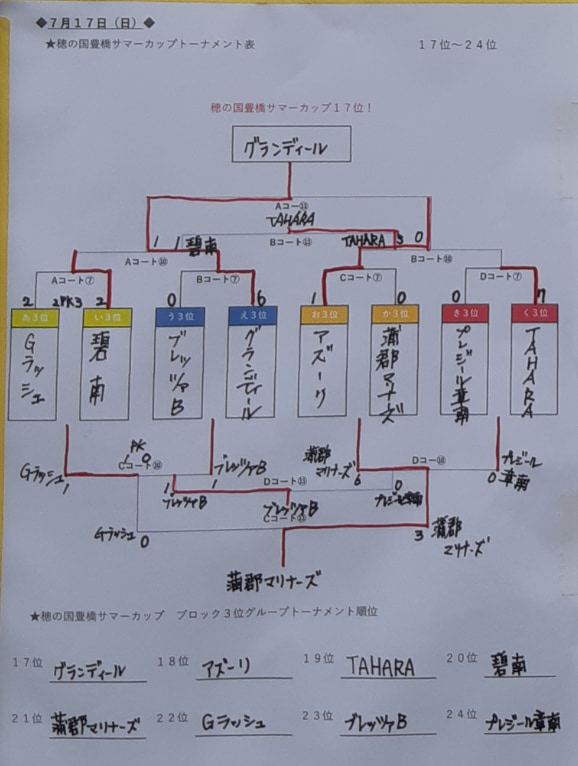 ◆7月17日（日）◆
★穂の国豊橋サマーカップトーナメント表 17位～24位
穂の国豊橋サマーカップ17位！
グランディール
Aコート⑬
TAHARA
1 1 碧南 Bコート⑬ TAHARA 3 0
Aコート⑩ Bコート⑩
Aコート⑦ Bコート⑦ Cコート⑦ Dコート⑦
2 2PK3 2 0 6 1 0 0 7
あ3位 い3位 う3位 え3位 お3位 か3位 き3位 く3位
Gラッシュ 碧南 ブレッツァB グランディール アズーリ 蒲郡マリナーズ プレジール章南 TAHARA
PK
1 0
Gラッシュ 1 Cコート⑩ 1 ブレッツァB 蒲郡マリナーズ 6 Dコー⑩ 0 プレジール章南
1 Dコート⑬ 0
ブレッツァB ブレッツァB
Gラッシュ 0 Cコート⑬ 3 蒲郡マリナーズ
蒲郡マリナーズ
★穂の国豊橋サマーカップ ブロック3位グループトーナメント順位
17位 グランディール 18位 アズーリ 19位 TAHARA 20位 碧南
21位 蒲郡マリナーズ 22位 Gラッシュ 23位 ブレッツァB 24位 プレジール章南